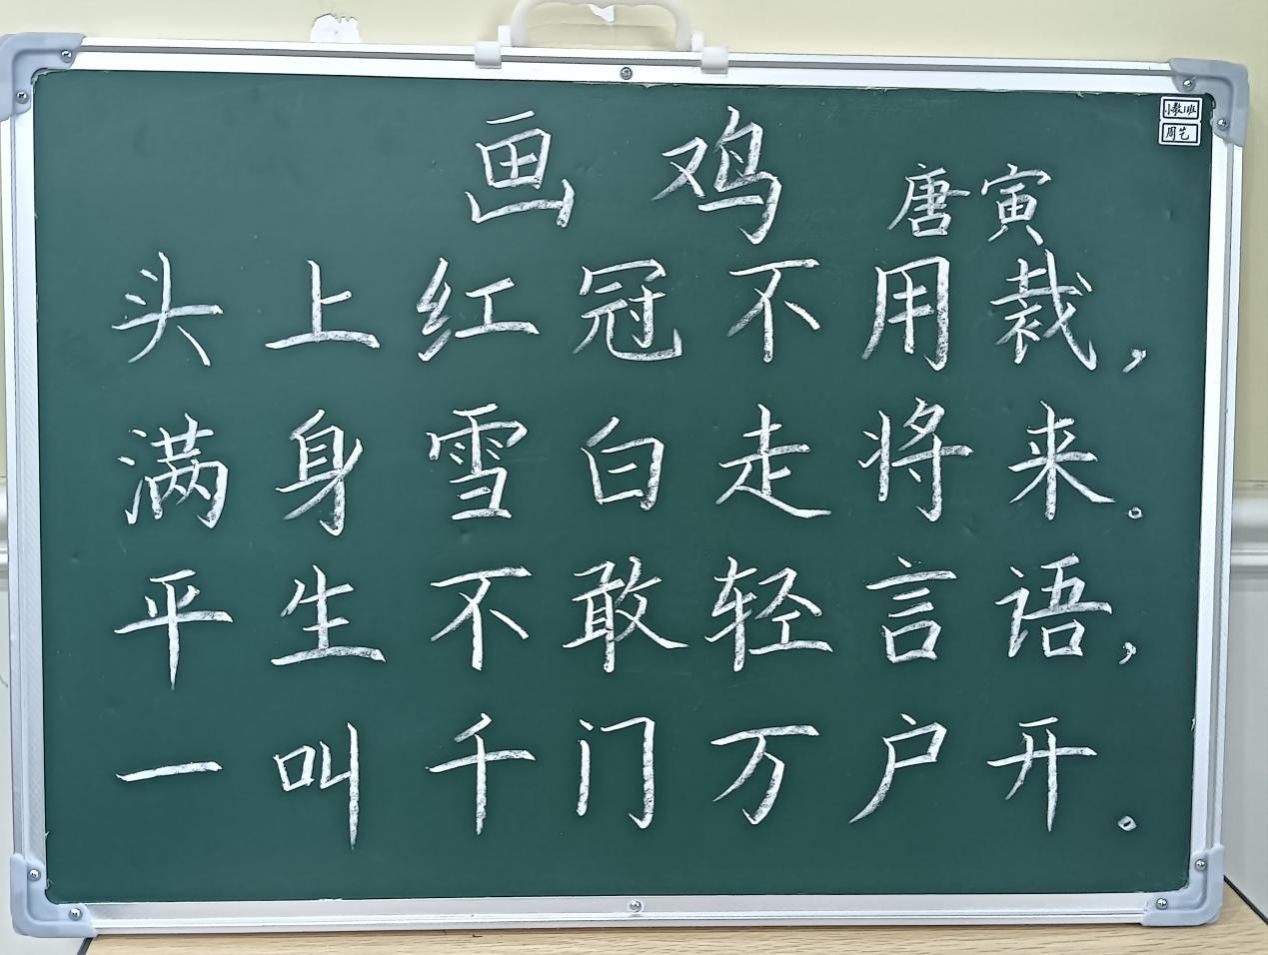 画鸡
唐寅
小教1班
周艺
头上红冠不用裁，
满身雪白走将来。
平生不敢轻言语，
一叫千门万户开。